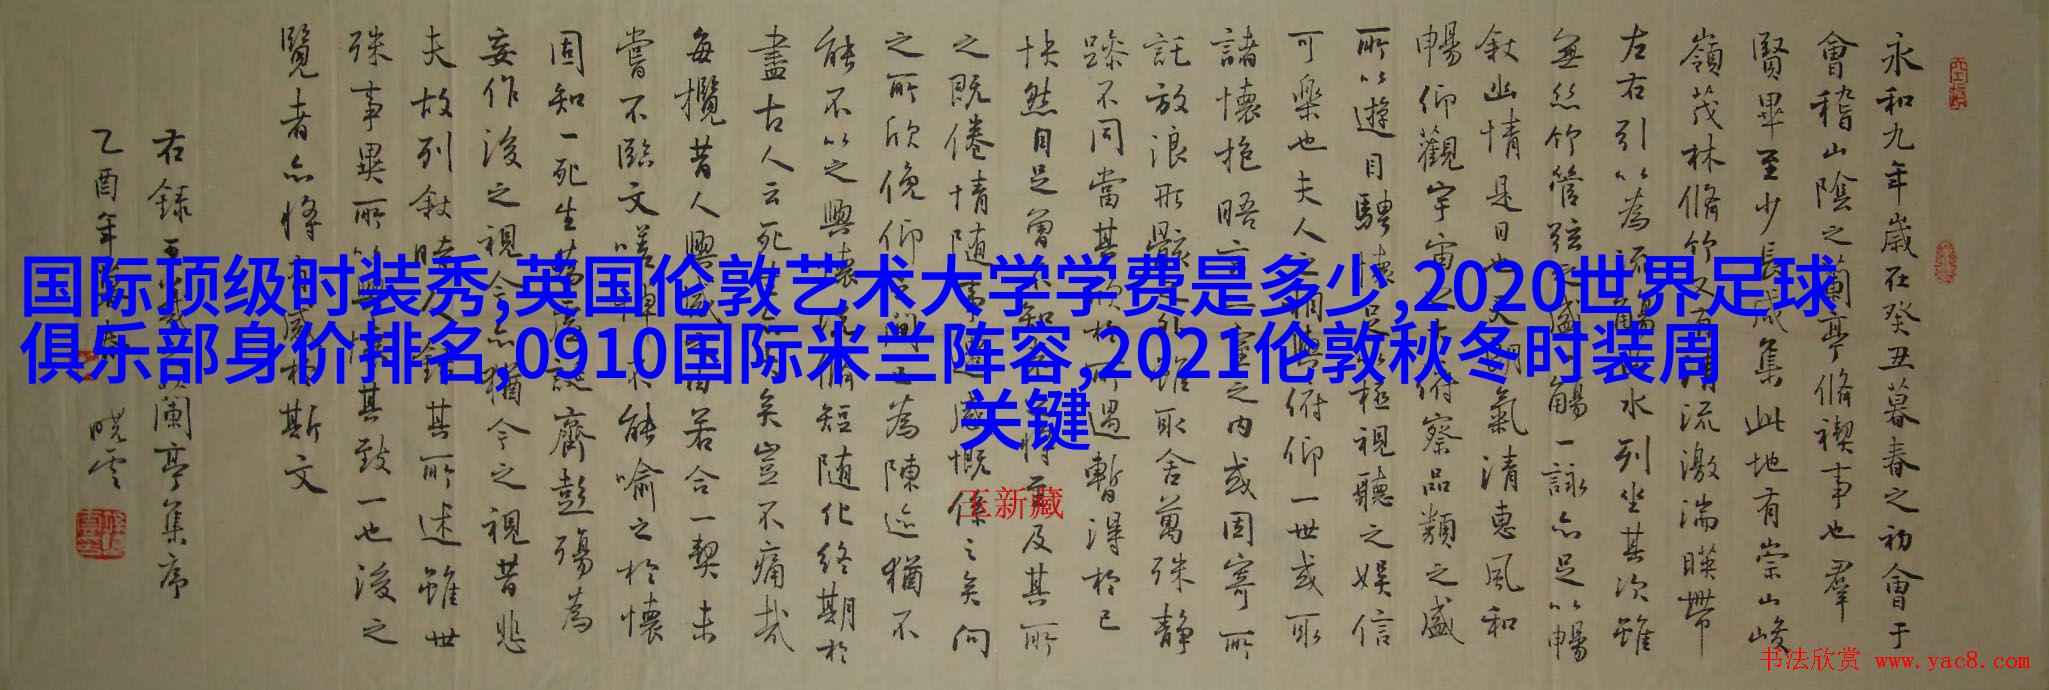 永和九年歲在癸丑暮春之初會于
會稽山陰之蘭亭脩禊事也羣
賢畢至少長咸集此地有崇山峻
嶺茂林脩竹又有清流激湍暎帶
左右引以為流觴曲水列坐其次雖
無絲竹管弦之盛一觴一詠亦足以暢
敘幽情是日也天朗氣清惠風和
暢仰觀宇宙之大俯察品類之盛
所以遊目騁懷足以極視聽之娛信
可樂也夫人之相與俯仰一世或取
諸懷抱晤言一室之內或因寄所
託放浪形骸之外雖取舍萬殊靜
躁不同當其欣於所遇暫得於己
快然自足曾不知老之將至及其所
之既倦情随事遷感慨係之矣向
之所欣俛仰之間已為陳迹猶不
能不以之興懷況脩短随化終期於
盡古人云死生亦大矣豈不痛哉
每攬昔人興感之由若合一契未
嘗不臨文嗟悼不能喻之於懷
固知一死生為虛誕齊彭殤為
妄作後之視今亦猶今之視昔悲
夫故列敘時人錄其所述雖世
殊事異所以興懷其致一也後之
覽者亦將有感於斯文
右録王羲之蘭亭集序
乙酉年 曉雲
国际顶级时装秀,英国伦敦艺术大学学费是多少,2020世界足球
俱乐部身价排名,0910国际米兰阵容,2021伦敦秋冬时装周
关键
王新藏
书法欣赏 www.yac8.com